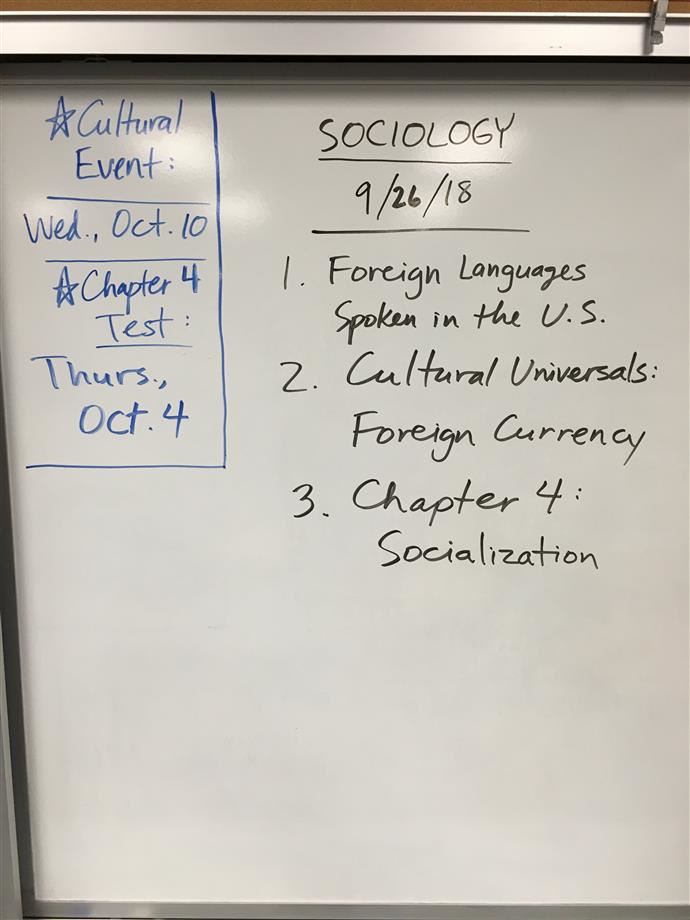 ☆Cultural
Event:
Wed., Oct. 10
☆Chapter 4
Test:
Thurs.,
Oct. 4
SOCIOLOGY
9/26/18
1. Foreign Languages
Spoken in the U.S.
2. Cultural Universals:
Foreign Currency
3. Chapter 4:
Socialization